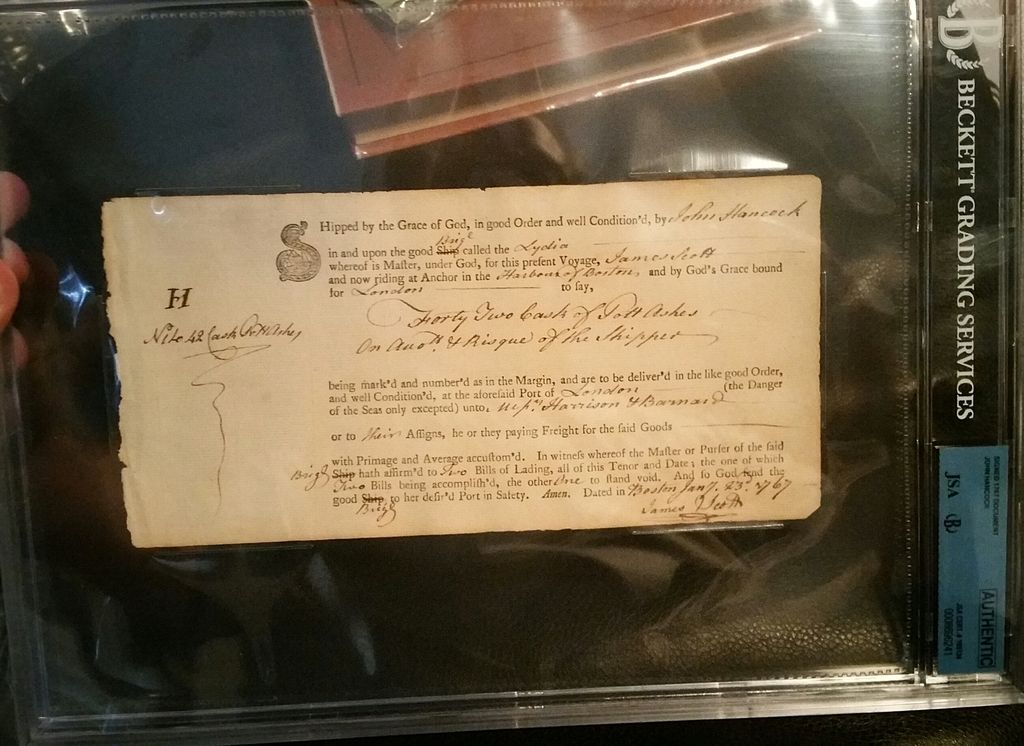 Shipped by the Grace of God, in good Order and well Condition'd, by John Hancock
in and upon the good Ship Brigt called the Lydia
whereof is Master, under God, for this present Voyage, James Scott
and now riding at Anchor in the Harbour of Boston, and by God's Grace bound
for London to say,
Forty Two Cask of Pott Ashes
On Accott. & Risque of the Shipper
H
No 1 to 42 Cask Pott Ashes
being mark'd and number'd as in the Margin, and are to be deliver'd in the like good Order,
and well Condition'd, at the aforesaid Port of London (the Danger
of the Seas only excepted) unto. Messrs. Harrison & Barnard
or to their Assigns, he or they paying Freight for the said Goods
with Primage and Average accustom'd. In witness whereof the Master or Purser of the said
Brigt Ship hath affirm'd to Two Bills of Lading, all of this Tenor and Date; the one of which
Two Bills being accomplish'd, the other One to stand void. And so God send the
good Ship Brigt to her desir'd Port in Safety. Amen. Dated in Boston Jany. 23d. 1767
James Scott
B
BECKETT GRADING SERVICES
SIGNED 1767 DOCUMENT
JOHN HANCOCK
JSA B
AUTHENTIC